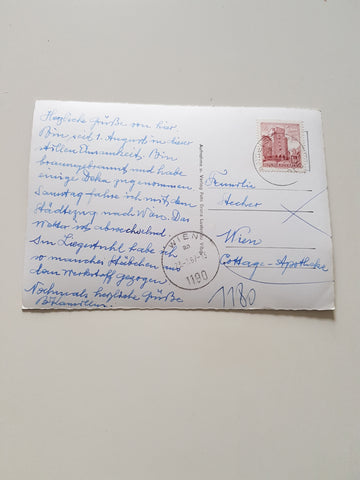 Herzliche Grüße von hier
Bin seit 1. August in dieser
stillen Einsamkeit. Bin
braungebrannt und habe
einige Deka zugenommen
Samstag fahre ich mit dem
Städtezug nach Wien. Das
Wetter ist abwechselnd
Im Liegestuhl habe ich
so manches Stübchen
dem Werkstoff gezogen
Nochmals herzliche Grüße
Familie
Hecher
Wien
Cottage-Apotheke
1180
WIEN
1190